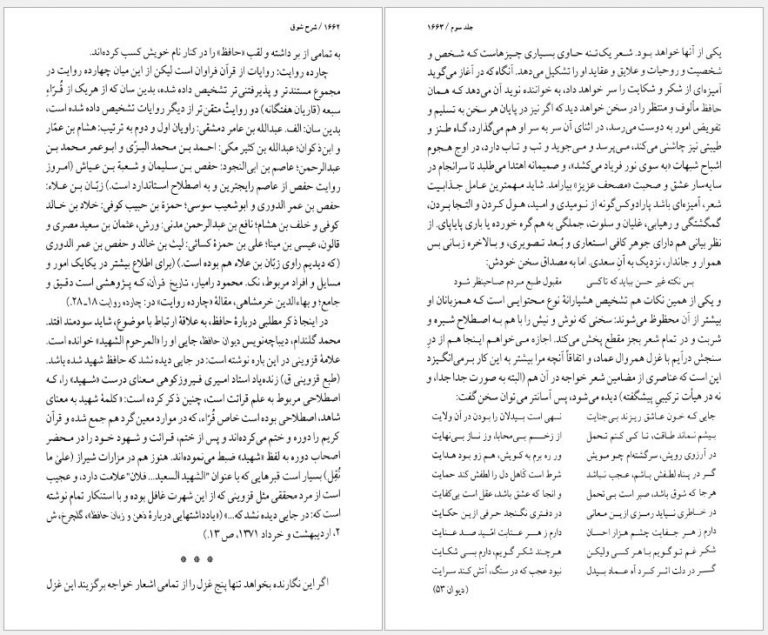 ۱۶۶۲ / شرح شوق
به تمامی از بر داشته و لقب «حافظ» را در کنار نام خویش کسب کرده‌اند.
چارده روایت: روایات از قرآن فراوان است لیکن از این میان چهارده روایت در
مجموع مستندتر و پذیرفتنی‌تر تشخیص داده شده، بدین سان که از هر یک از قُرّاءِ
سبعه (قاریان هفتگانه) دو روایتْ متقن‌تر از دیگر روایات تشخیص داده شده است،
بدین سان: الف. عبدالله بن عامر دمشقی: راویان اول و دوم به ترتیب: هشام بن عمّار
و ابن‌ذکوان؛ عبدالله بن کثیر مکی: احمد بن محمد البزّی و ابوعمر محمد بن
عبدالرحمن؛ عاصم بن ابی‌النجود: حفص بن سلیمان و شعبة بن عیاش (امروز
روایت حفص از عاصم رایجترین و به اصطلاح استاندارد است.) زبّان بن علاء:
حفص بن عمر الدوری و ابوشعیب سوسی؛ حمزة بن حبیب کوفی: خلاد بن خالد
کوفی و خلف بن هشام؛ نافع بن عبدالرحمن مدنی: ورش، عثمان بن سعید مصری و
قالون، عیسی بن مینا؛ علی بن حمزهٔ کسائی: لیث بن خالد و حفص بن عمر الدوری
(که دیدیم راوی زبّان بن علاء هم بوده است.) (برای اطلاع بیشتر در یکایک امور و
مسایل و افراد مربوط، نک. محمود رامیار، تاریخ قرآن، که پژوهشی است دقیق و
جامع؛ و بهاءالدین خرمشاهی، مقالهٔ «چارده روایت» در: چارده روایت ۱۸ـ۲۸.)
در اینجا ذکر مطلبی دربارهٔ حافظ، به علاقهٔ ارتباط با موضوع، شاید سودمند افتد.
محمد گلندام، دیباچه‌نویس دیوان حافظ، جایی او را «المرحوم الشهید» خوانده است.
علامهٔ قزوینی در این باره نوشته است: در جایی دیده نشد که حافظ شهید شده باشد.
(طبع قزوینی ق) زنده‌یاد استاد امیری فیروزکوهی معنای درست «شهید» را، که
اصطلاحی مربوط به علم قرائت است، چنین ذکر کرده است: «کلمهٔ شهید به معنای
شاهد، اصطلاحی بوده است خاص قُرّاء، که در موارد معین گرد هم جمع شده و قرآن
کریم را دوره و ختم می‌کرده‌اند و پس از ختم، قرائت و شهود خود را در محضر
اصحاب دوره به لفظ «شهید» ضبط می‌نموده‌اند. هنوز هم در مزارات شیراز (علیٰ ما
نُقِلَ) بسیار است قبرهایی که با عنوان "الشهید السعید... فلان" علامت دارد، و عجیب
است از مرد محققی مثل قزوینی که از این شهرت غافل بوده و با استنکار تمام نوشته
است که: در جایی دیده نشد که...» («یادداشتهایی دربارهٔ ذهن و زبان حافظ»، گلچرخ، ش
۲، اردیبهشت و خرداد ۱۳۷۱، ص ۱۳.)
* * *
اگر این نگارنده بخواهد تنها پنج غزل را از تمامی اشعار خواجه برگزیند این غزل
جلد سوم / ۱۶۶۳
یکی از آنها خواهد بود. شعر یک‌تنه حاوی بسیاری چیزهاست که شخص و
شخصیت و روحیات و علایق و عقاید او را تشکیل می‌دهد. آنگاه که در آغاز می‌گوید
آمیزه‌ای از شکر و شکایت را سر خواهد داد، به خواننده نوید آن می‌دهد که همان
حافظ مألوف و منتظَر را در سخن خواهد دید که اگر نیز در پایان هر سخن به تسلیم و
تفویض امور به دوست می‌رسد، در اثنای آن سر به سر او هم می‌گذارد، گاه طنز و
طیبتی نیز چاشنی می‌کند، می‌پرسد و می‌جوید و تب و تاب دارد، در اوج هجوم
اشباح شبهات «به سوی نور فریاد می‌کشد»، و صمیمانه اهتدا می‌طلبد تا سرانجام در
سایه‌سار عشق و صحبت «مصحف عزیز» بیارامد. شاید مهمترین عامل جذابیت
شعر، آمیزه‌ای باشد پارادوکس‌گونه از نومیدی و امید، هول کردن و التجا بردن،
گمگشتگی و رهیابی، غلیان و سلوت، جملگی به هم گره خورده یا باری پایاپای. از
نظر بیانی هم دارای جوهر کافی استعاری و بُعد تصویری، و بالاخره زبانی بس
هموار و جاندار، نزدیک به آنِ سعدی. اما به مصداق سخن خودش:
بس نکته غیر حسن بباید که تا کسی مقبول طبع مردم صاحبنظر شود
و یکی از همین نکات هم تشخیص هشیارانهٔ نوع محتوایی است که همزبانان او
بیشتر از آن محظوظ می‌شوند: سخنی که نوش و نیش را با هم به اصطلاح شیره و
شربت و در تمام شعر بجز مقطع پخش می‌کند. اجازه می‌خواهم اینجا هم از درِ
سنجش درآیم با غزل همروال عماد، و اتفاقاً آنچه مرا بیشتر به این کار برمی‌انگیزد
این است که عناصری از مضامین شعر خواجه در آن هم (البته به صورت جدا جدا، و
نه در هیأت ترکیبی پیشگفته) دیده می‌شود، پس آسانتر می‌توان سخن گفت:
جایی که خون عاشق ریزند بی‌جنایت نهی است بیدلان را بودن در آن ولایت
بیشم نماند طاقت، تا کی کنم تحمل از زخم بی‌محابا، وز ناز بی‌نهایت
در آرزوی رویش، سرگشته‌ام چو مویش ور ره برم به کویش، هم زو بود هدایت
گر در پناه لطفش باشم، عجب نباشد شرط است کاهل دل را لطفش کند حمایت
هر جا که شوق باشد، صبر است بی‌تحمل و آنجا که عشق باشد، عقل است بی‌کفایت
در خاطری نیاید رمزی از این معانی در دفتری نگنجد حرفی از این حکایت
دارم ز هر جفایت چشم هزار احسان دارم ز هر عنایت امّید صد عنایت
شکر غم تو گویم با هر کسی ولیکن هر چند شکر گویم، دارم بسی شکایت
گر در دلت اثر کرد آه عماد بیدل نبود عجب که در سنگ، آتش کند سرایت
(دیوان ۵۳)